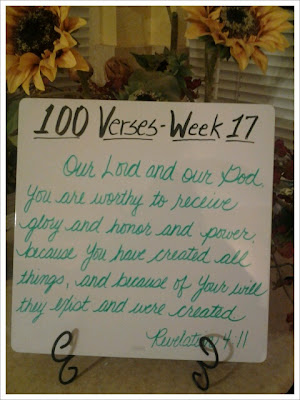 100 Verses - Week 17
Our Lord and our God,
You are worthy to receive
glory and honor and power,
because You have created all
things, and because of Your will
they exist and were created
Revelation 4:11